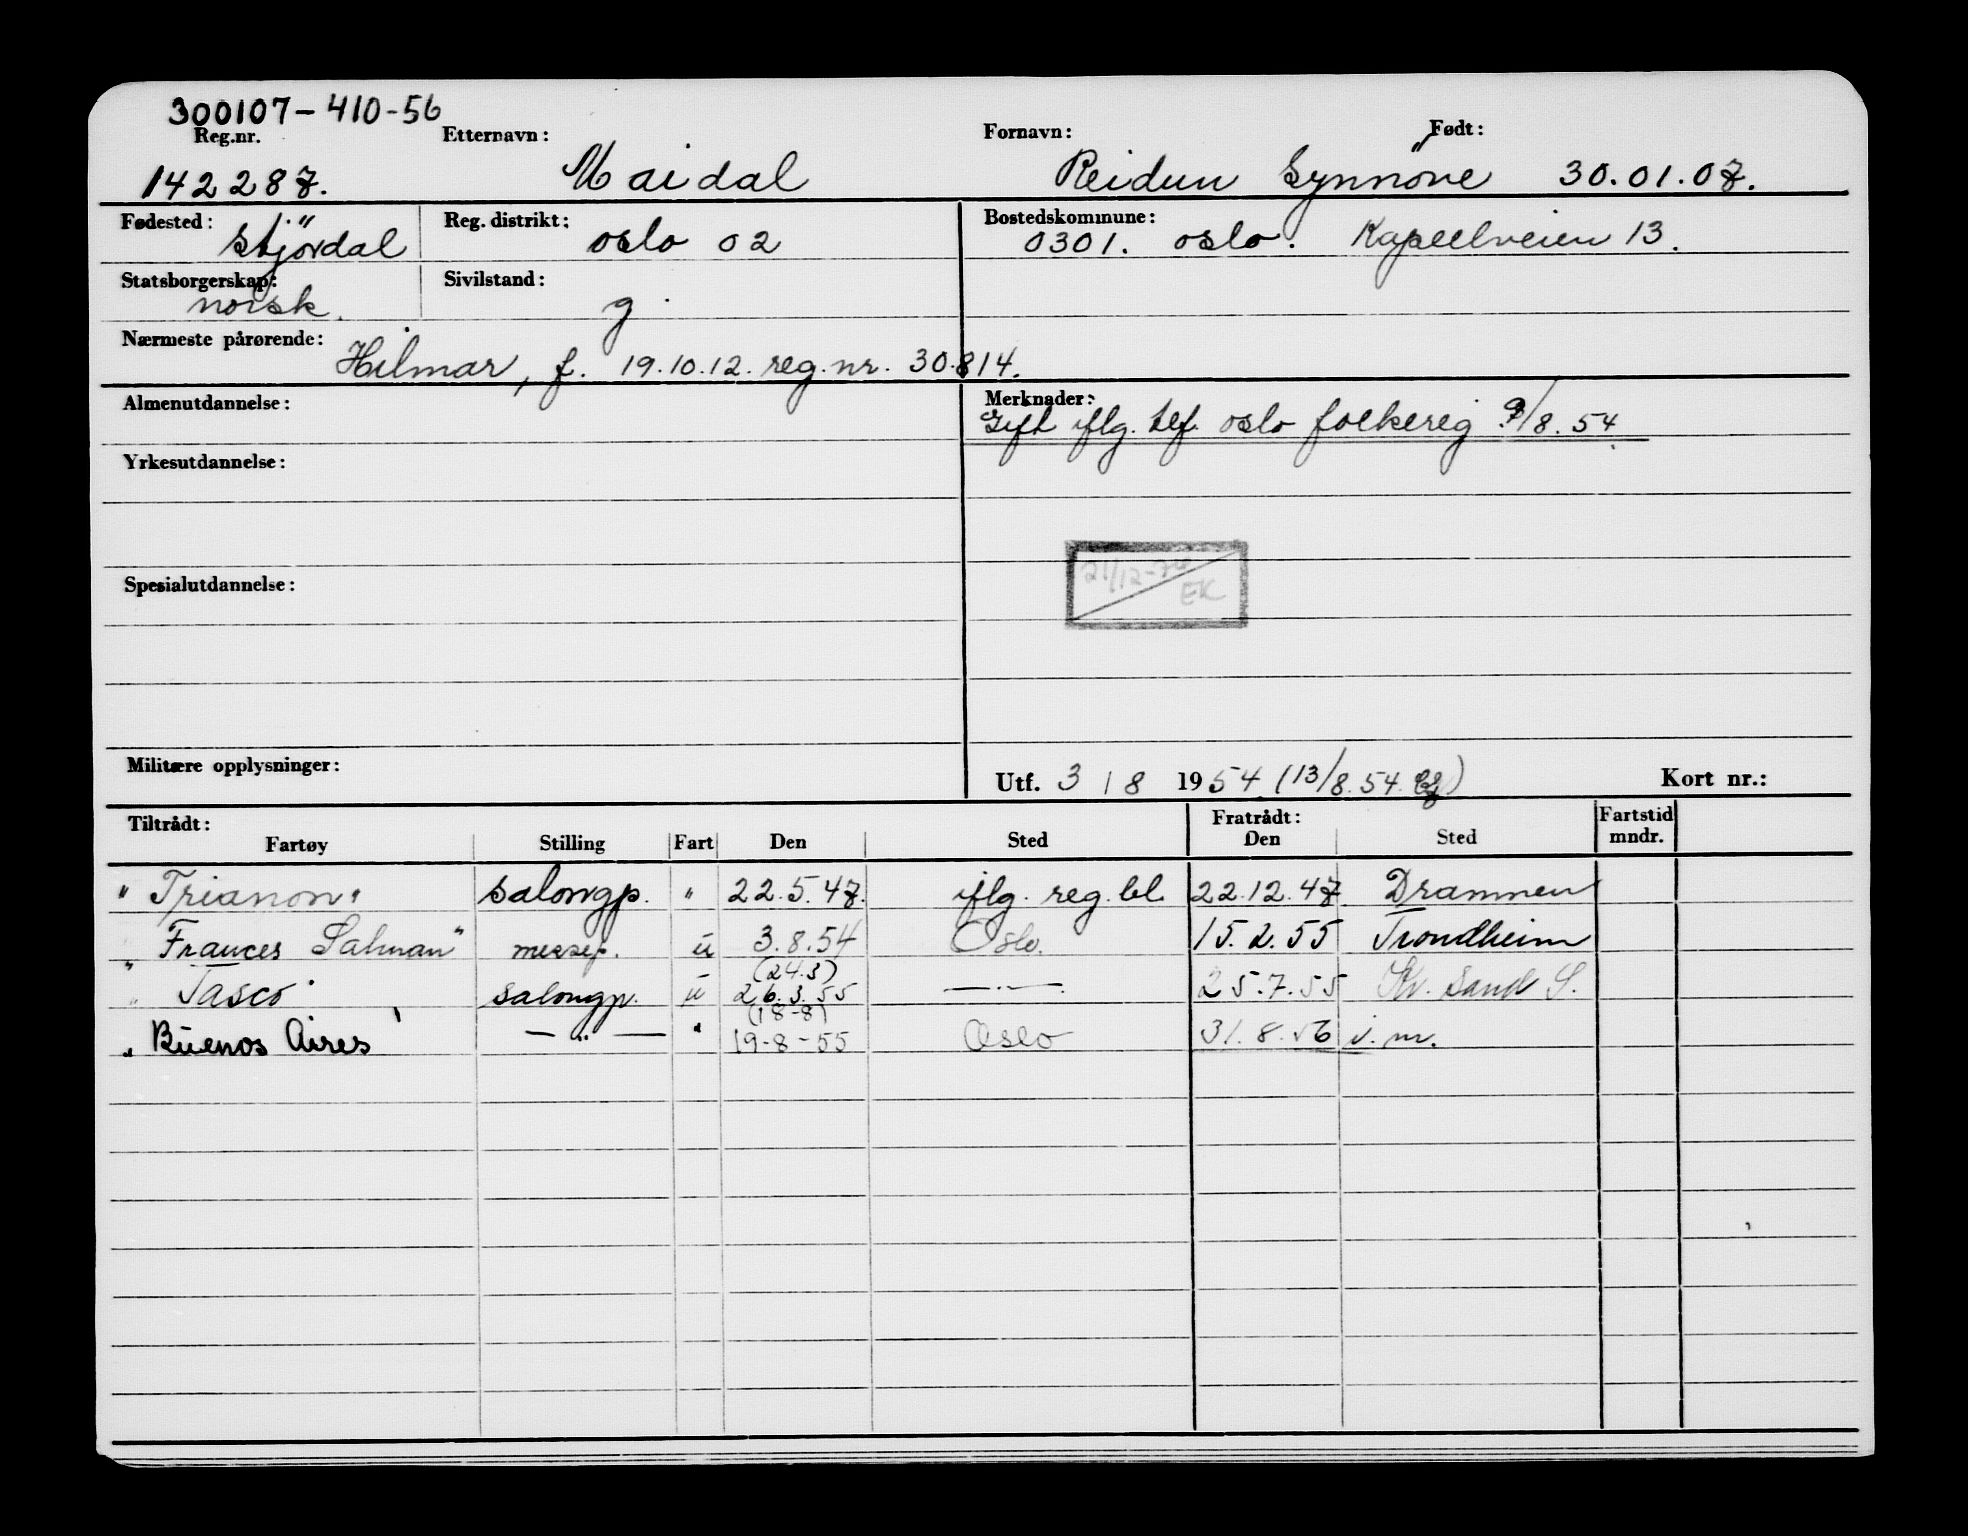 300107-410-56
Reg.nr. Etternavn: Fornavn: Født:
142287. Maidal Reidun Synnöve 30.01.07.
Fødested: Stjördal Reg. distrikt: oslo 02 Bostedskommune: 0301. oslo. Kapellveien 13.
Statsborgerskap: norsk. Sivilstand: g.
Nærmeste pårørende: Hilmar, f. 19.10.12. reg.nr. 30.814.
Almenutdannelse: Merknader:
Gift iflg. tlf. oslo folkereg 9/8.54
Yrkesutdannelse:
21/12-70
EK
Spesialutdannelse:
Militære opplysninger: Utf. 3 / 8 1954 (13/8.54. ) Kort nr.:
Tiltrådt: Fratrådt: Fartstid
Fartøy Stilling Fart Den Sted Den Sted mndr.
"Trianon" salongp. " 22.5.47. iflg. reg.bl. 22.12.47. Drammen
"Frances Salman" messep. u 3.8.54 Oslo. 15.2.55 Trondheim
(24.3)
"Tasco" salongp. u 26.3.55 —.— 25.7.55 Kr. Sand S.
(18-8)
"Buenos Aires" —"— " 19-8-55 Oslo 31.8.56 i.m.